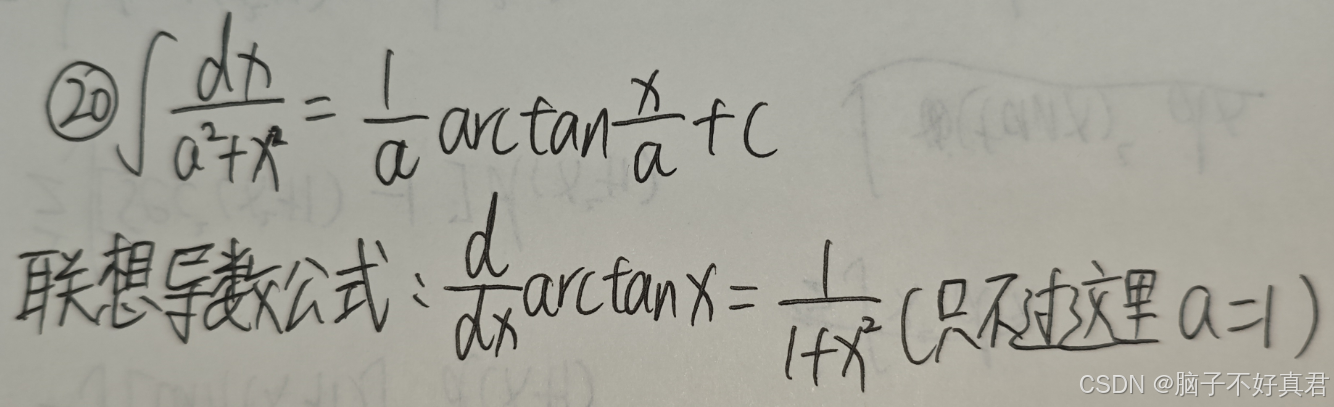 ⑳ ∫ dx/(a²+x²) = 1/a arctan x/a + C
联想导数公式：d/dx arctanx = 1/(1+x²) (只不过这里 a=1)
CSDN @脑子不好真君